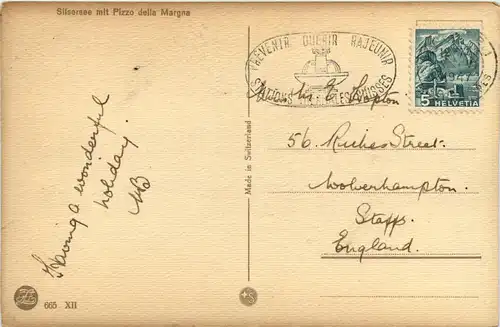 Silsersee mit Pizzo della Margna
Having a wonderful
holiday.
MB
665 XII
Made in Switzerland
PRÉVENIR GUÉRIR RAJEUNIR
STATIONS SUISSES
5 HELVETIA
56 Riches Street.
Wolverhampton.
Staffs.
England.